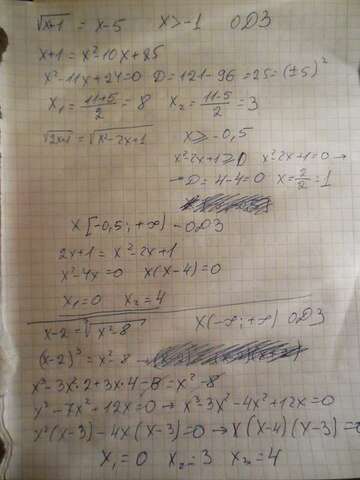 √x+1 = x-5   x>-1   ОДЗ
x+1 = x²-10x+25
x²-11x+24=0   D=121-96=25=(±5)²
x₁=(11+5)/2=8   x₂=(11-5)/2=3
√2x+1 = √x²-2x+1   x≥-0,5
x²-2x+1≥0   x²-2x+1=0→
→D=4-4=0   x=2/2=1
x[-0,5;+∞)-ОДЗ
2x+1=x²-2x+1
x²-4x=0   x(x-4)=0
x₁=0   x₂=4
x-2=∛x²-8   x(-∞;+∞) ОДЗ
(x-2)³=x²-8→
x³-3x²·2+3x·4-8=x²-8
x³-7x²+12x=0→x³-3x²-4x²+12x=0
x²(x-3)-4x(x-3)=0→x(x-4)(x-3)=0
x₁=0   x₂=3   x₃=4